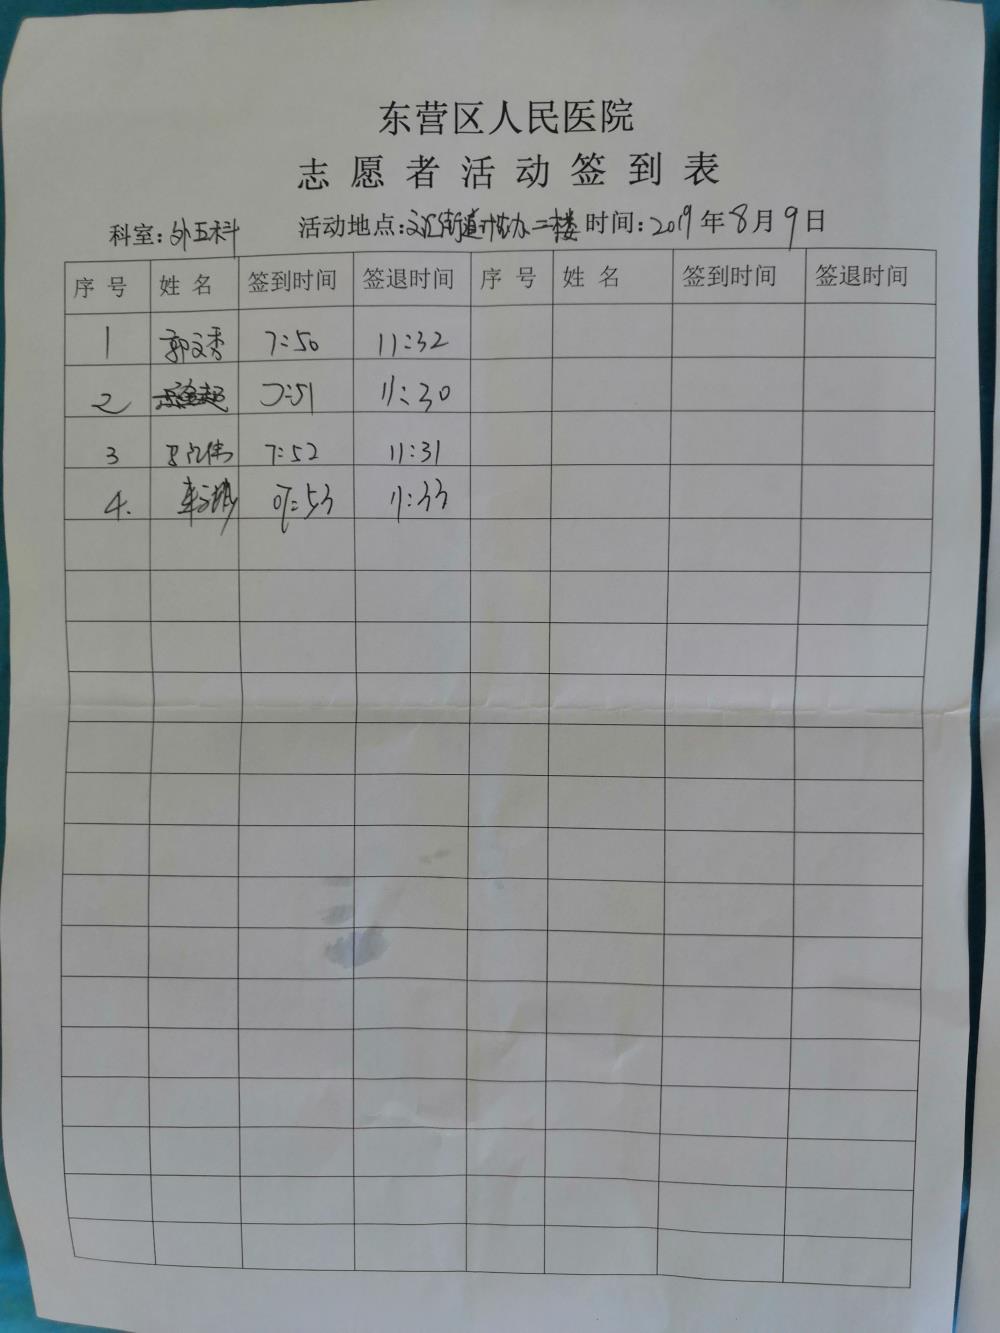 东营区人民医院
志愿者活动签到表
科室:外五科 活动地点:文汇街道计生办二楼 时间:2019年8月9日
序号 姓名 签到时间 签退时间 序号 姓名 签到时间 签退时间
1 郭文秀 7:50 11:32
2 7:51 11:30
3 7:52 11:31
4. 07:53 11:33